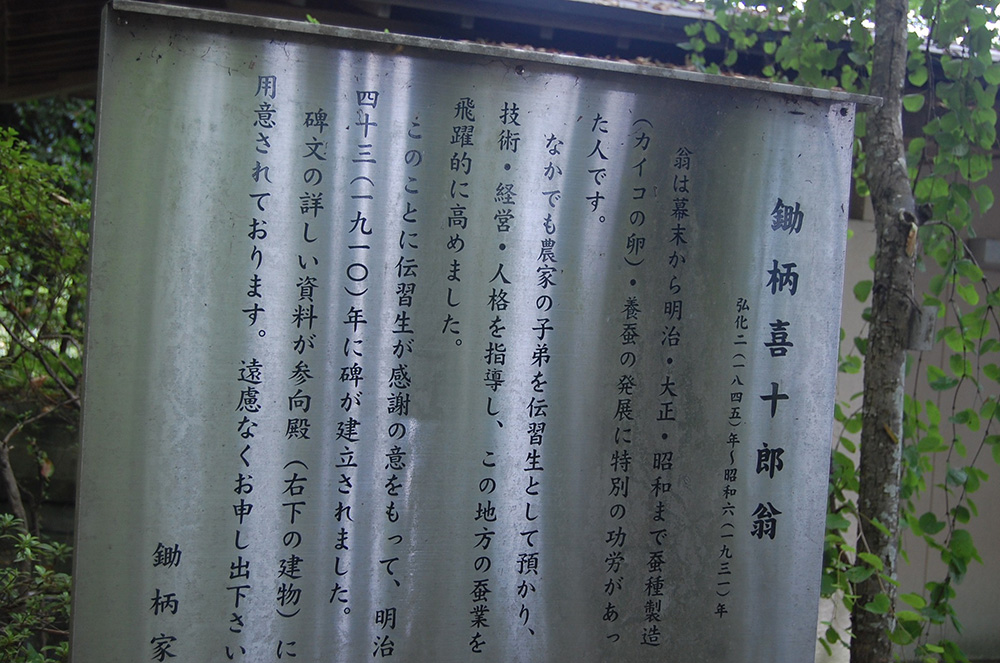 鋤柄喜十郎翁
弘化二(一八四五)年〜昭和六(一九三一)年
翁は幕末から明治・大正・昭和まで蚕種製造
(カイコの卵)・養蚕の発展に特別の功労があっ
た人です。
なかでも農家の子弟を伝習生として預かり、
技術・経営・人格を指導し、この地方の蚕業を
飛躍的に高めました。
このことに伝習生が感謝の意をもって、明治
四十三(一九一〇)年に碑が建立されました。
碑文の詳しい資料が参向殿(右下の建物)に
用意されております。遠慮なくお申し出下さい
鋤柄家